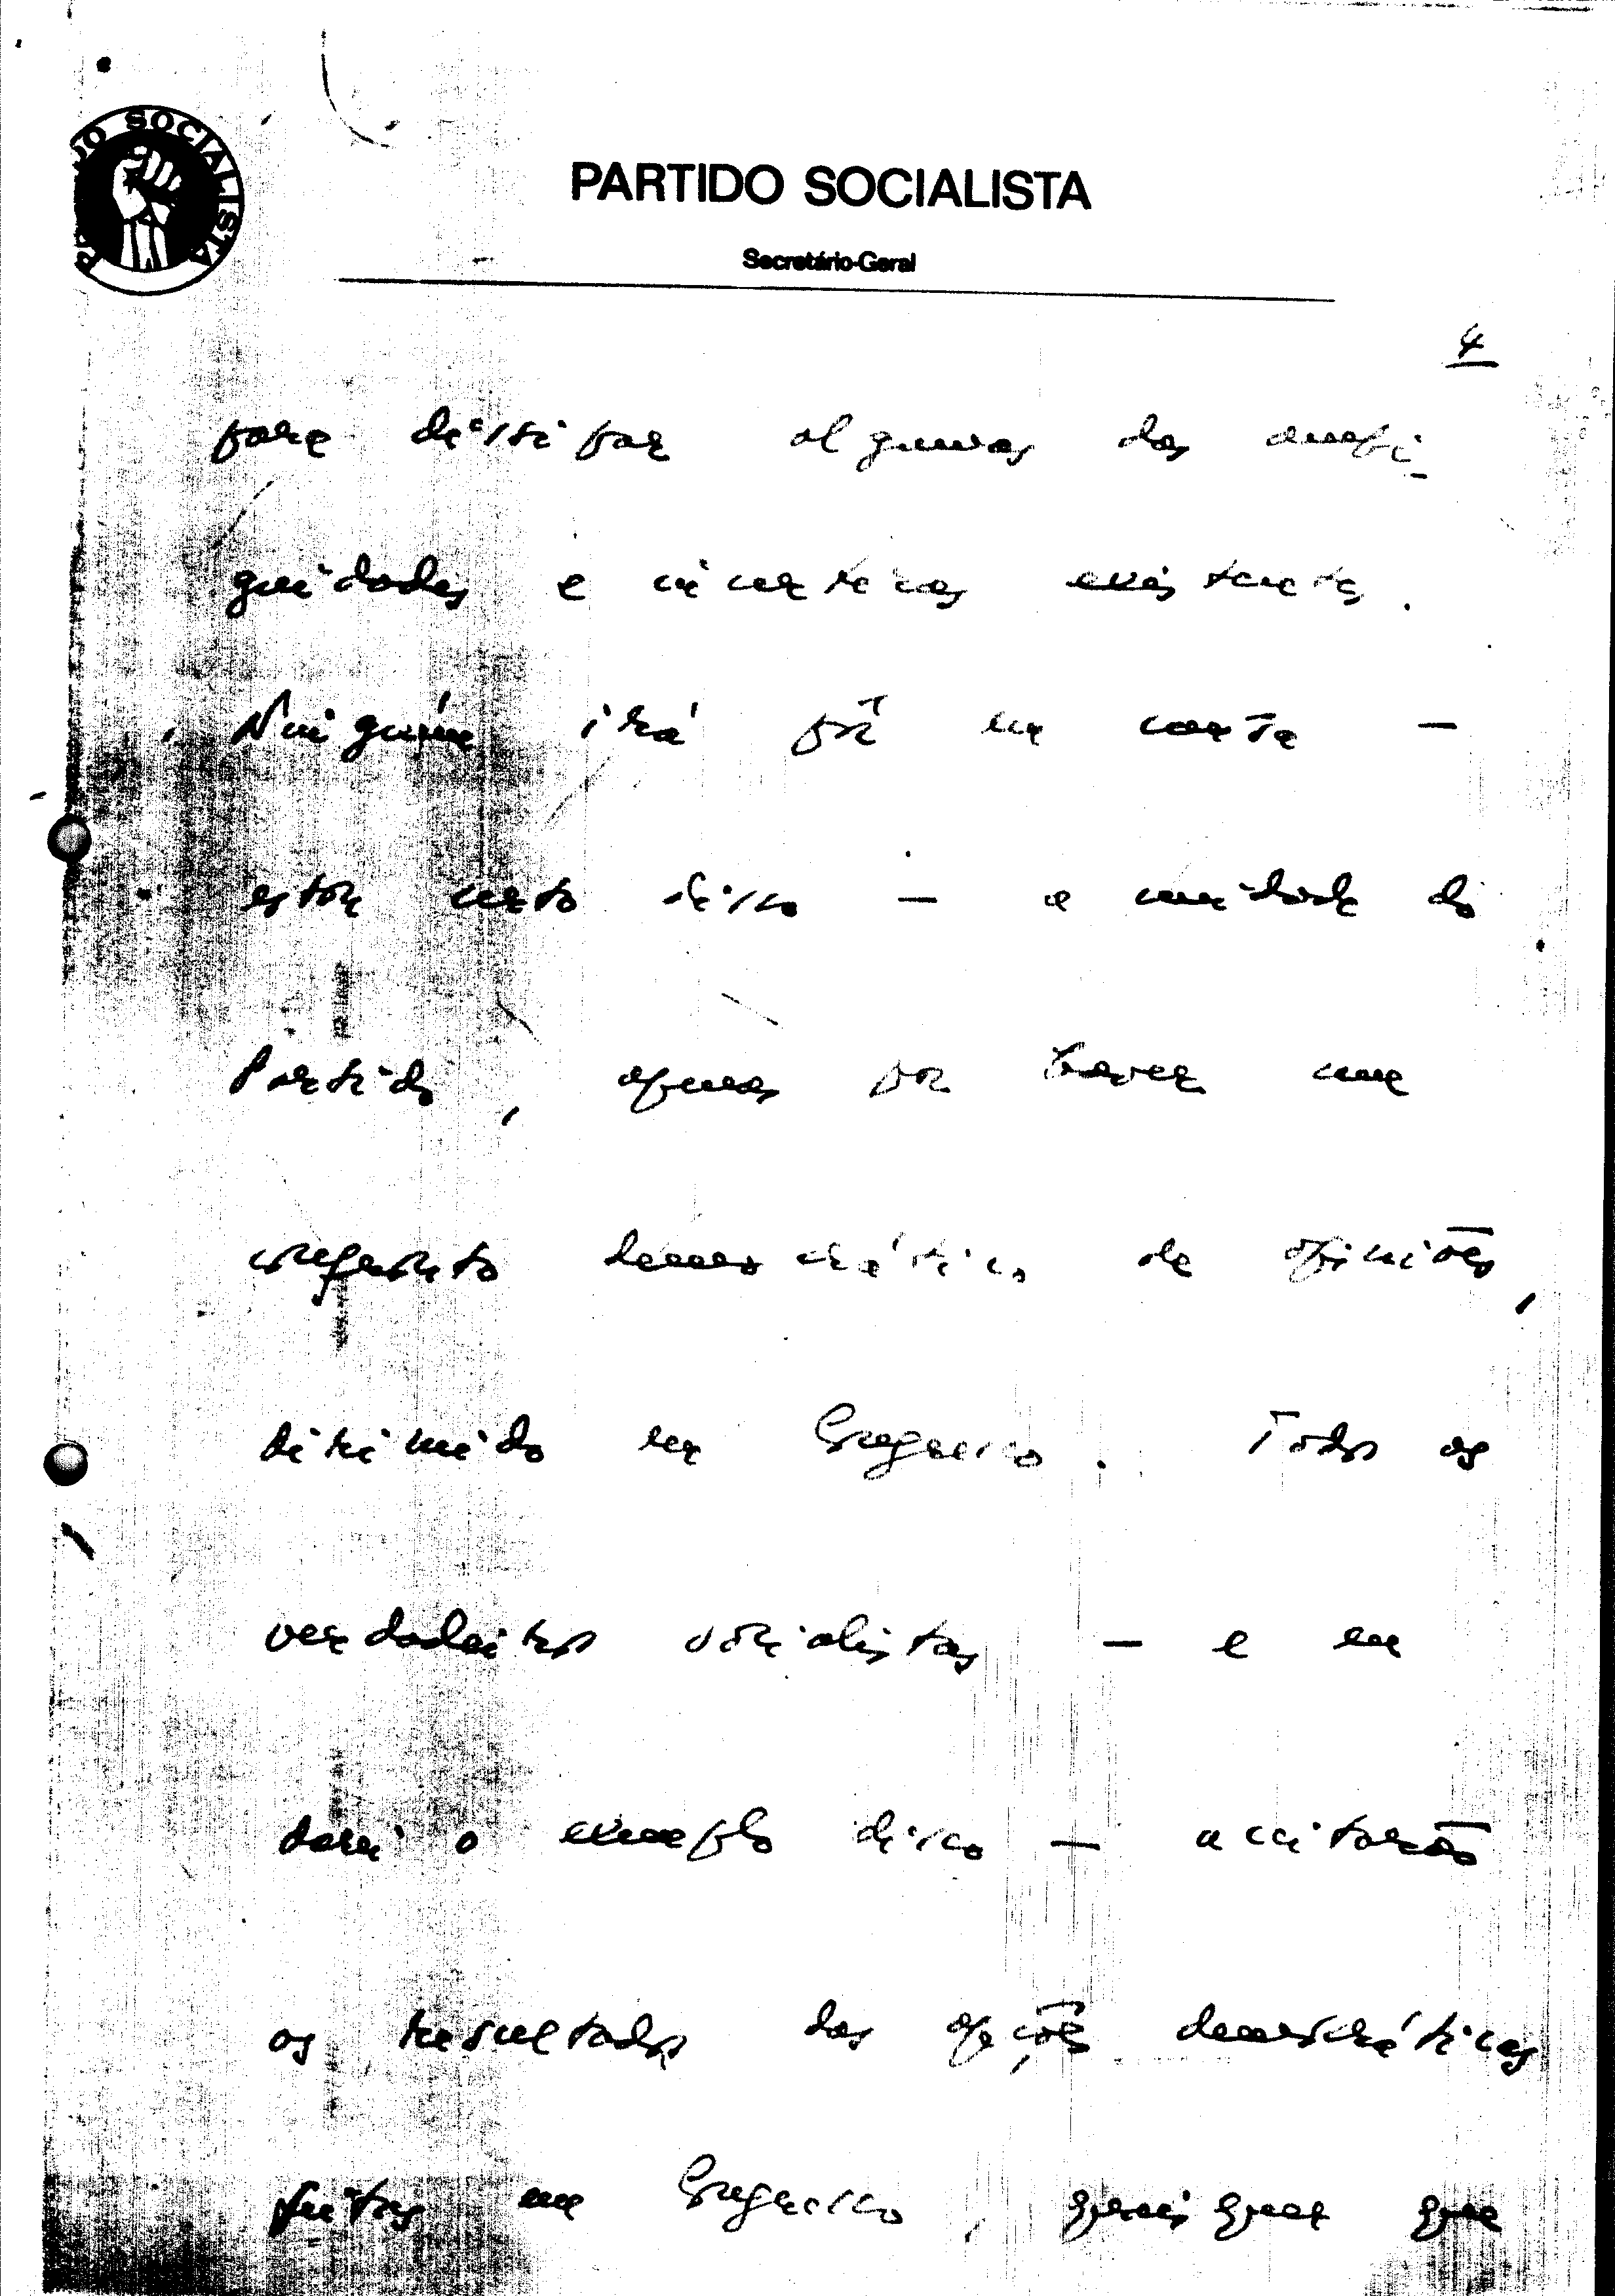 PARTIDO SOCIALISTA
PARTIDO SOCIALISTA
Secretário-Geral
4
para dissipar algumas das ambi-
guidades e incertezas existentes.
Ninguém irá pôr em causa —
estou certo disso — a unidade do
Partido, apenas por haver um
confronto democrático de opiniões,
dirimido em Congresso. Todos os
verdadeiros socialistas — e eu
darei o exemplo disso — aceitarão
os resultados das opções democráticas
feitas em Congresso, quaisquer que